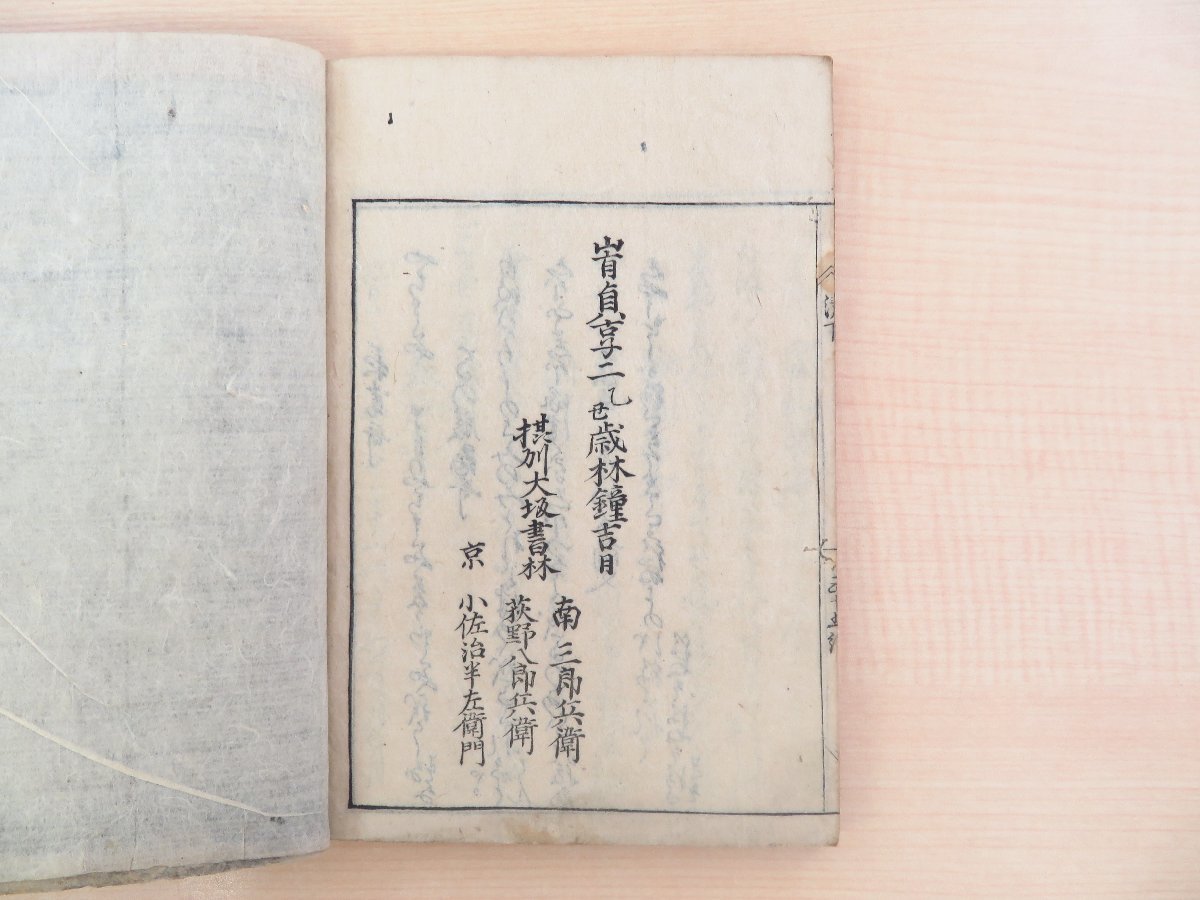 旹貞享二乙丑歳林鐘吉日
摂州大坂書林
南三郎兵衛
荻野八郎兵衛
京 小佐治半左衛門